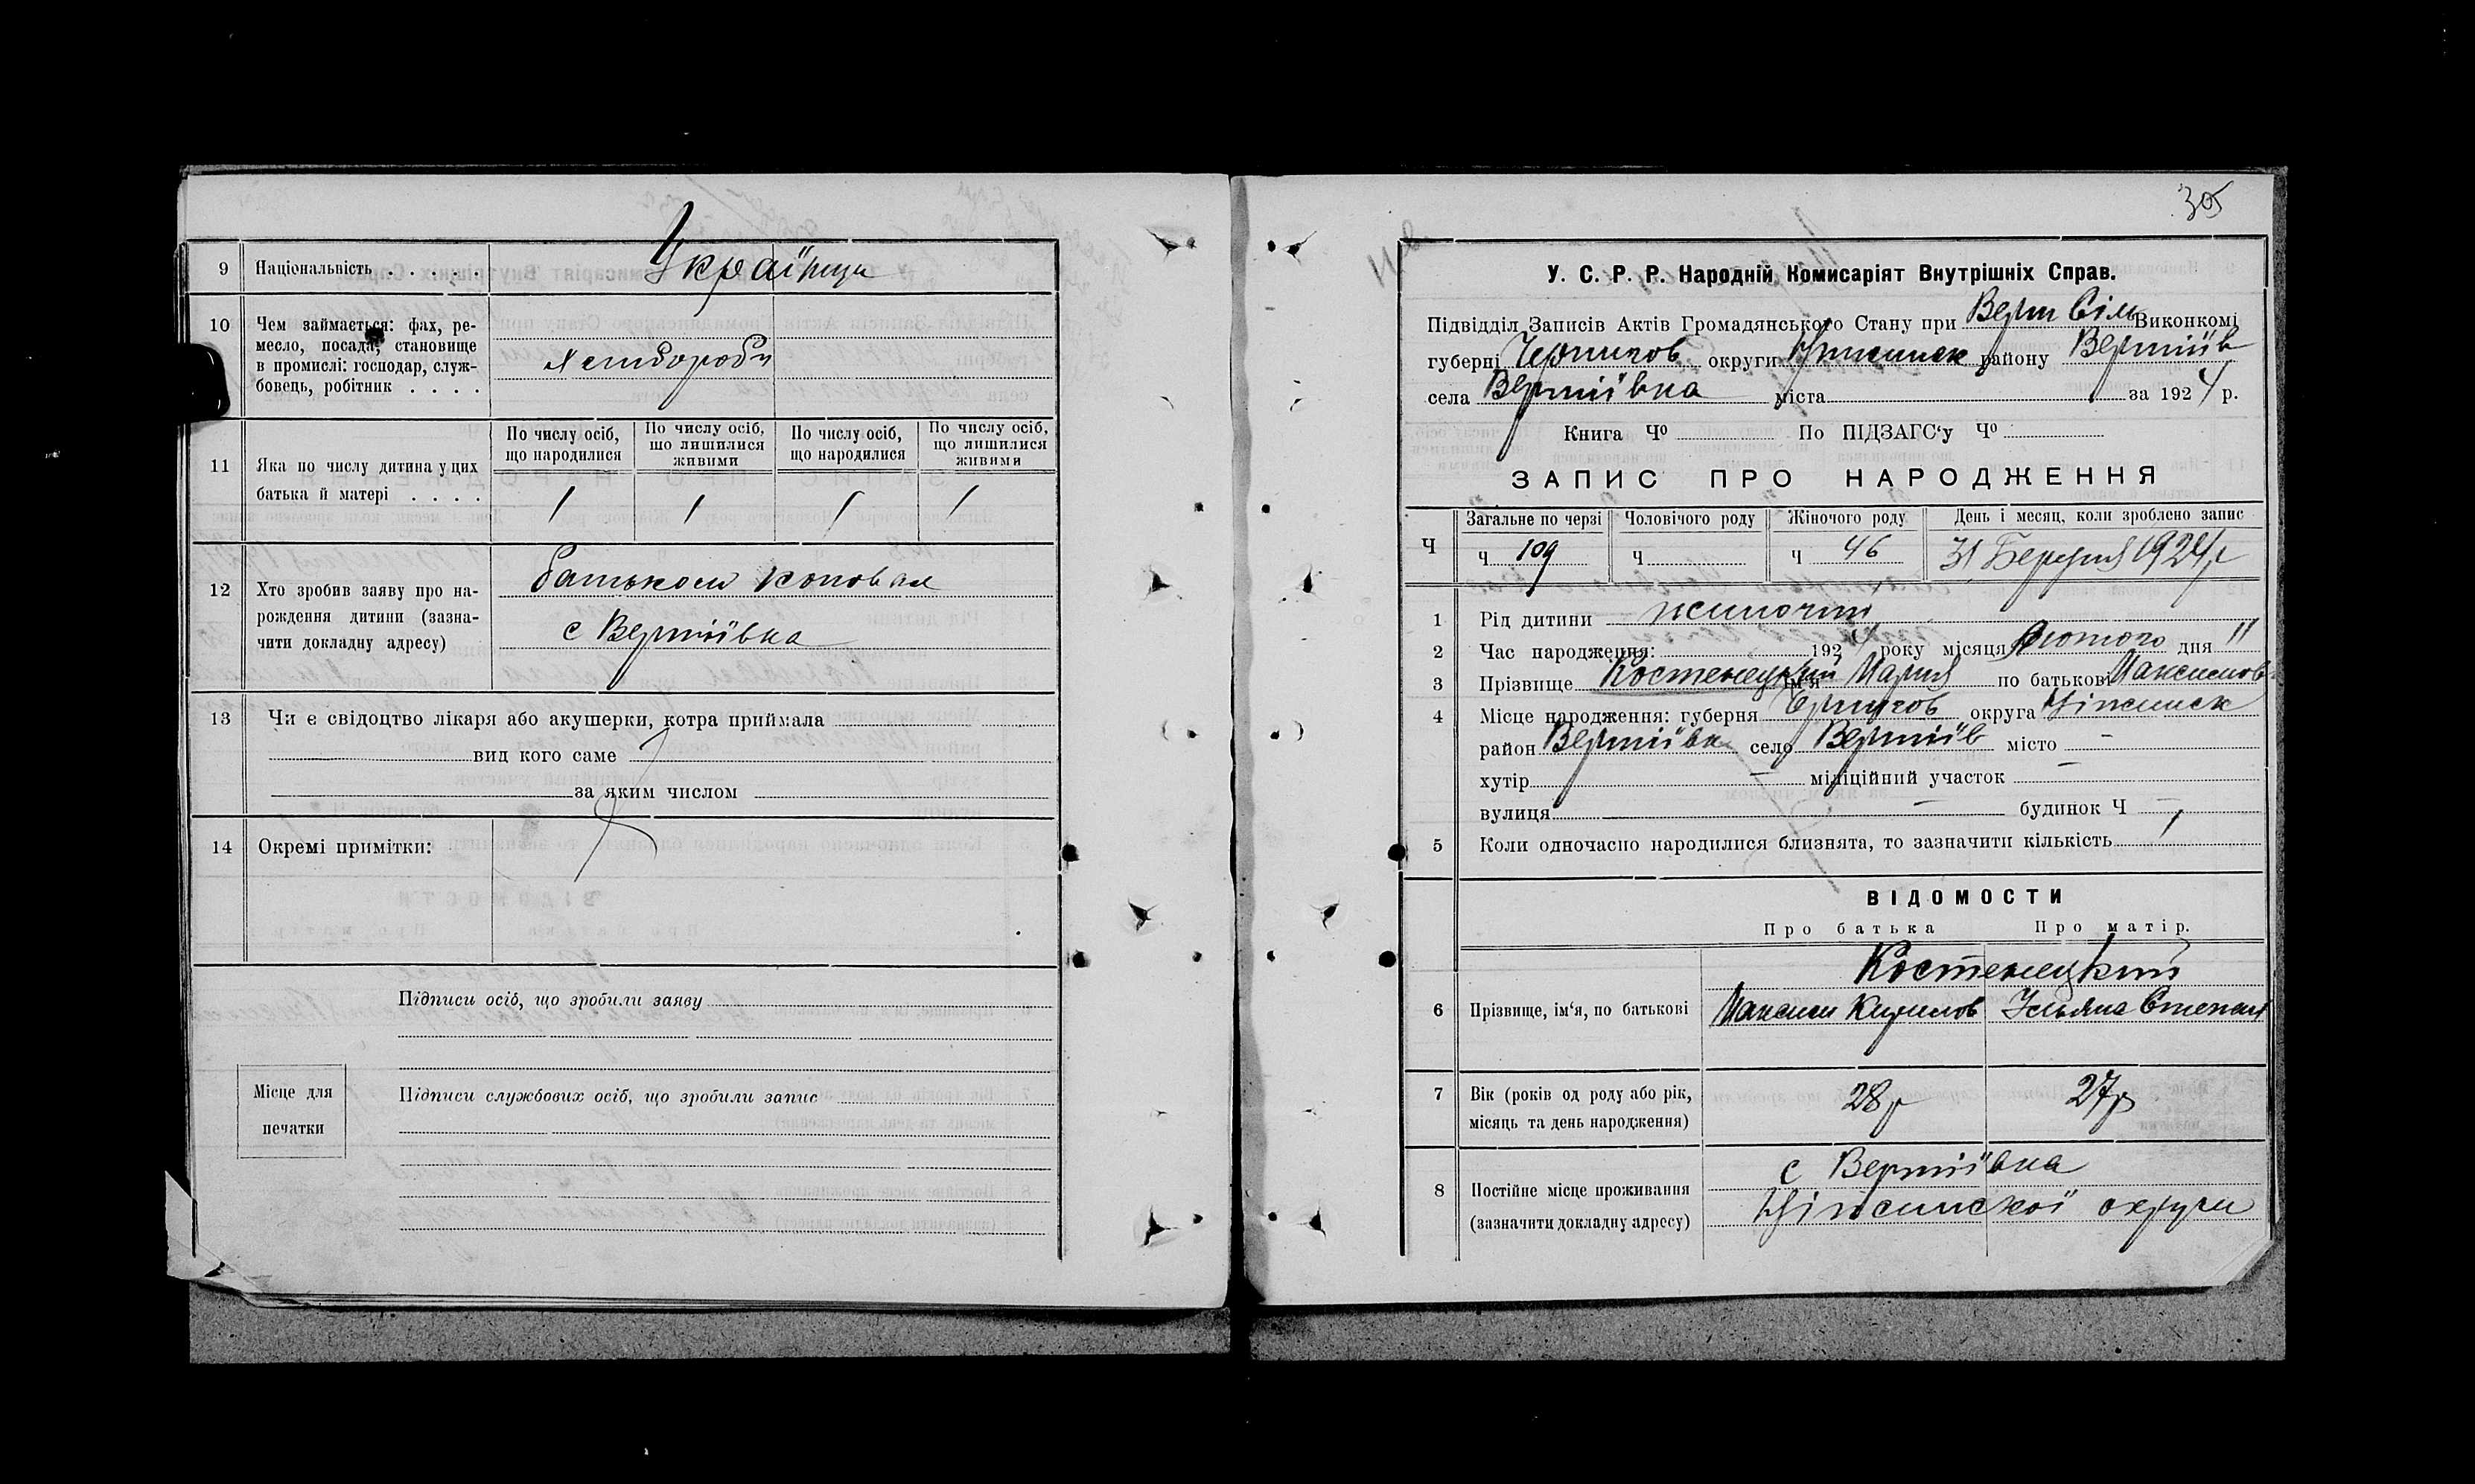 9 Національність . . . . . Українци
10 Чем займається: фах, ре-
месло, посада, становище
в промислі: господар, служ-
бовець, робітник . . . .
Хлібороби
11 Яка по числу дитина у цих
батька й матері . . . .
По числу осіб, що народилися
По числу осіб, що лишилися живими
По числу осіб, що народилися
По числу осіб, що лишилися живими
1 1 1 1
12 Хто зробив заяву про на-
рождення дитини (зазна-
чити докладну адресу)
батьком
с Вертіївка
13 Чи є свідоцтво лікаря або акушерки, котра приймала
вид кого саме
за яким числом
14 Окремі примітки:
Підписи осіб, що зробили заяву
Місце для
печатки
Підписи службових осіб, що зробили запис
30
У. С. Р. Р. Народній Комисаріят Внутрішніх Справ.
Підвідділ Записів Актів Громадянського Стану при Верт Сіль Виконкомі
губерні Чернигов округи Ніжинск району Вертіїв
села Вертіївка міста за 1924 р.
Книга Чº По ПІДЗАГС‘у Чº
ЗАПИС ПРО НАРОДЖЕННЯ
Ч
Загальне по черзі Чоловічого роду Жіночого роду День і месяц, коли зроблено запис
Ч 109 Ч Ч 46 31 Березня 1924 р
1 Рід дитини жиночий
2 Час народження: 1924 року місяця Лютого дня 11
3 Прізвище Костенецький ім‘я Мария по батькові Максимов
4 Місце народження: губерня Чернигов округа Ніжинск
район Вертіївк село Вертіїв місто –
хутір – міліційний участок –
вулиця – будинок Ч –
5 Коли одночасно народилися близнята, то зазначити кількість 1
ВІДОМОСТИ
Про батька Про матір.
Костенецкий
6 Прізвище, ім‘я, по батькові Максим Кирилов Ульяна Степан
7 Вік (років од роду або рік,
місяць та день народження)
28 р 27 р
8 Постійне місце проживання
(зазначити докладну адресу)
с Вертіївка
Ніжинскої округи